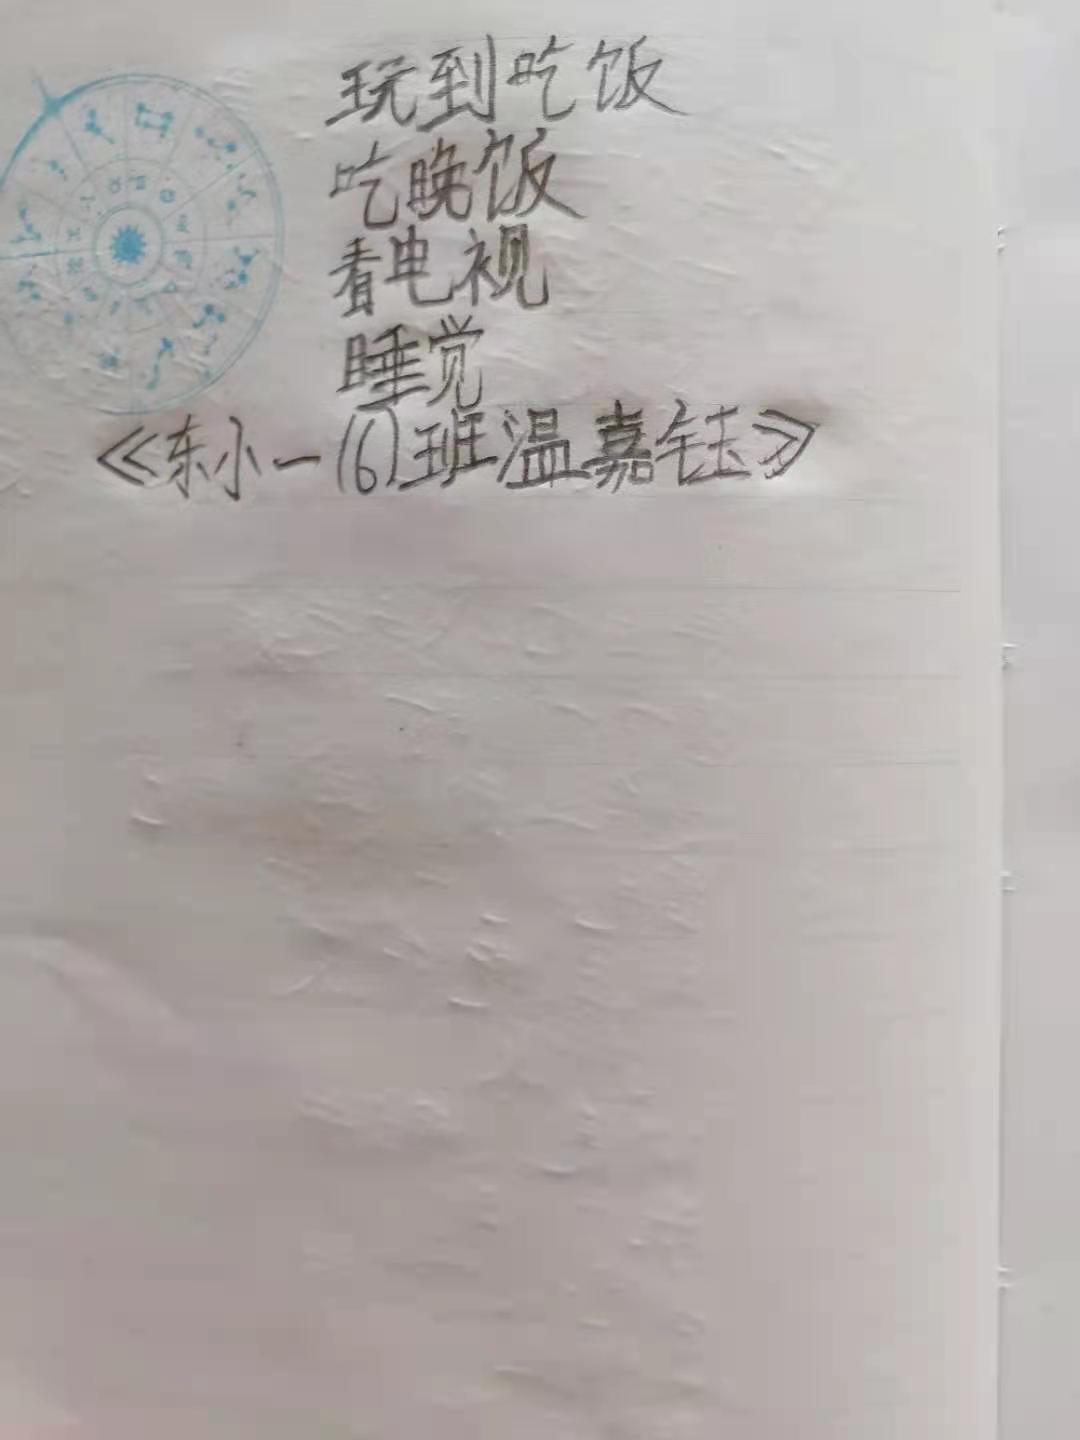 玩到吃饭
吃晚饭
看电视
睡觉
《东小一(6)班温嘉钰》